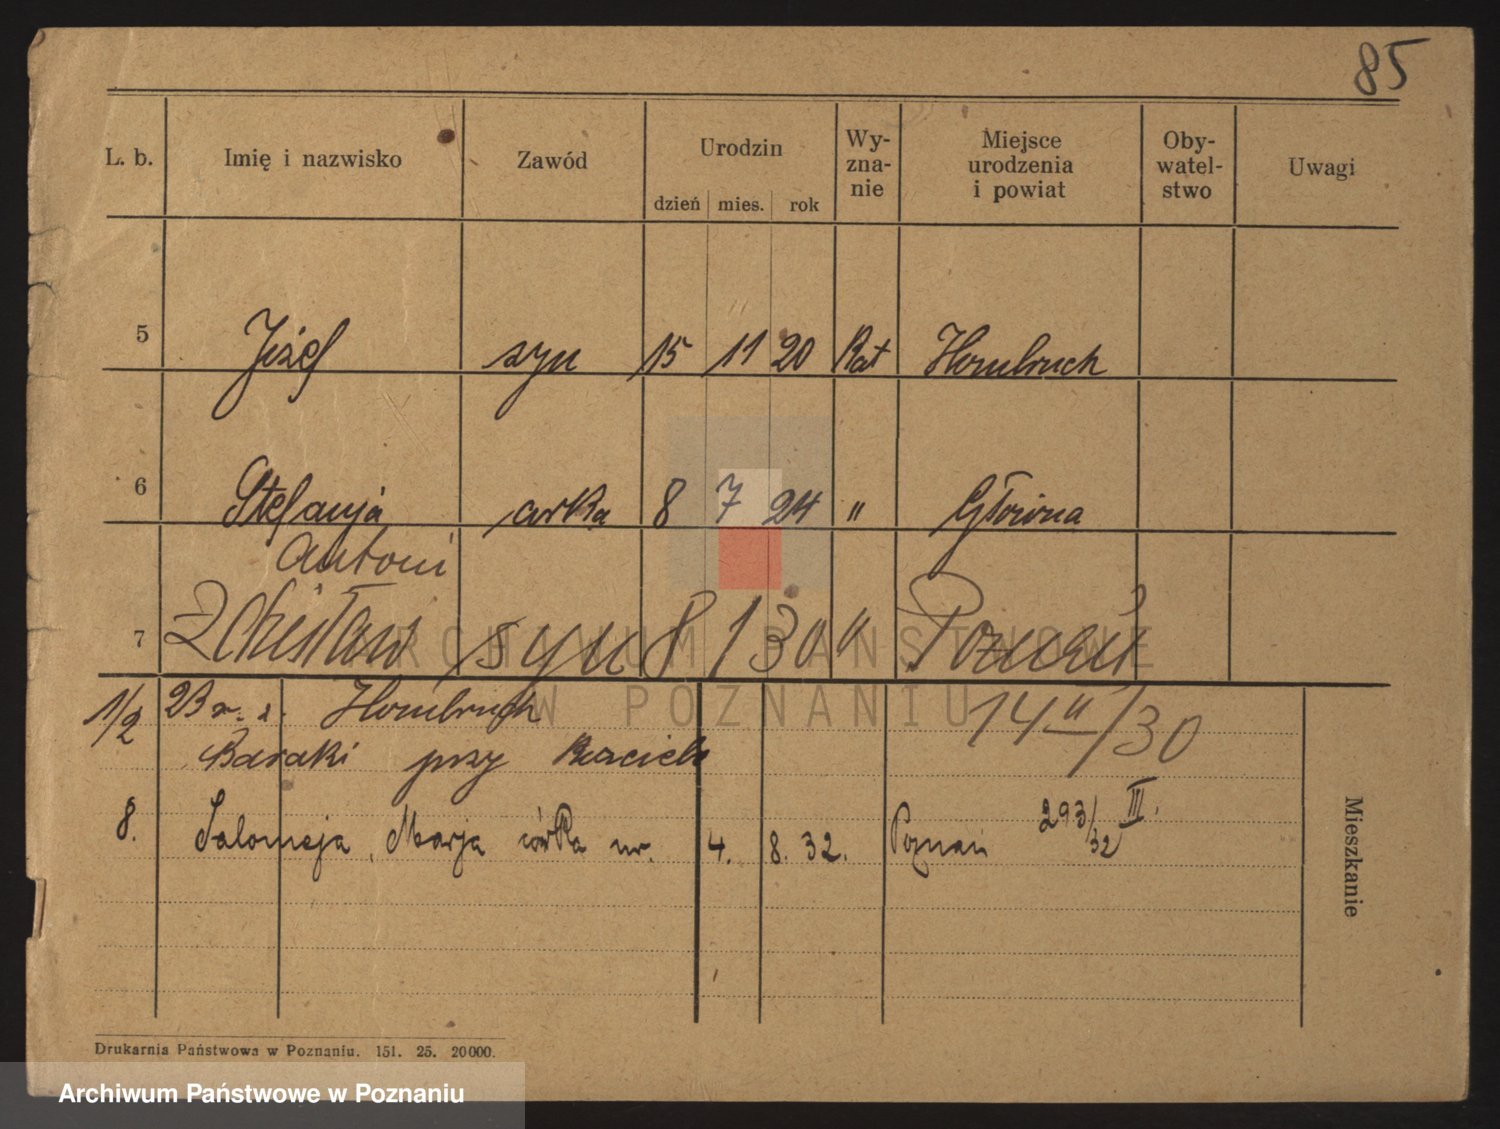 85
L. b. Imię i nazwisko Zawód Urodzin dzień mies. rok Wy-zna-nie Miejsce urodzenia i powiat Oby-watel-stwo Uwagi
5 Józef syn 15 11 20 Kat Hombruch
6 Stefanja córka 8 7 24 " Główna
Antoni
7 Zdzisław syn 8 1 30 " Poznań
1/2 23 Hombruch 14 /30
Baraki przy
8. Salomeja, Marja córka ur. 4. 8. 32. Poznań 293/32 III.
Mieszkanie
ARCHIWUM PAŃSTWOWE
W POZNANIU
Drukarnia Państwowa w Poznaniu. 151. 25. 20000.
Archiwum Państwowe w Poznaniu